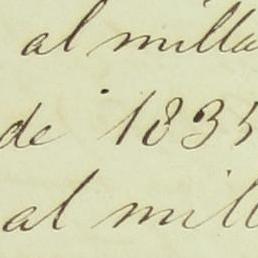 al milla
de 1835
al mill